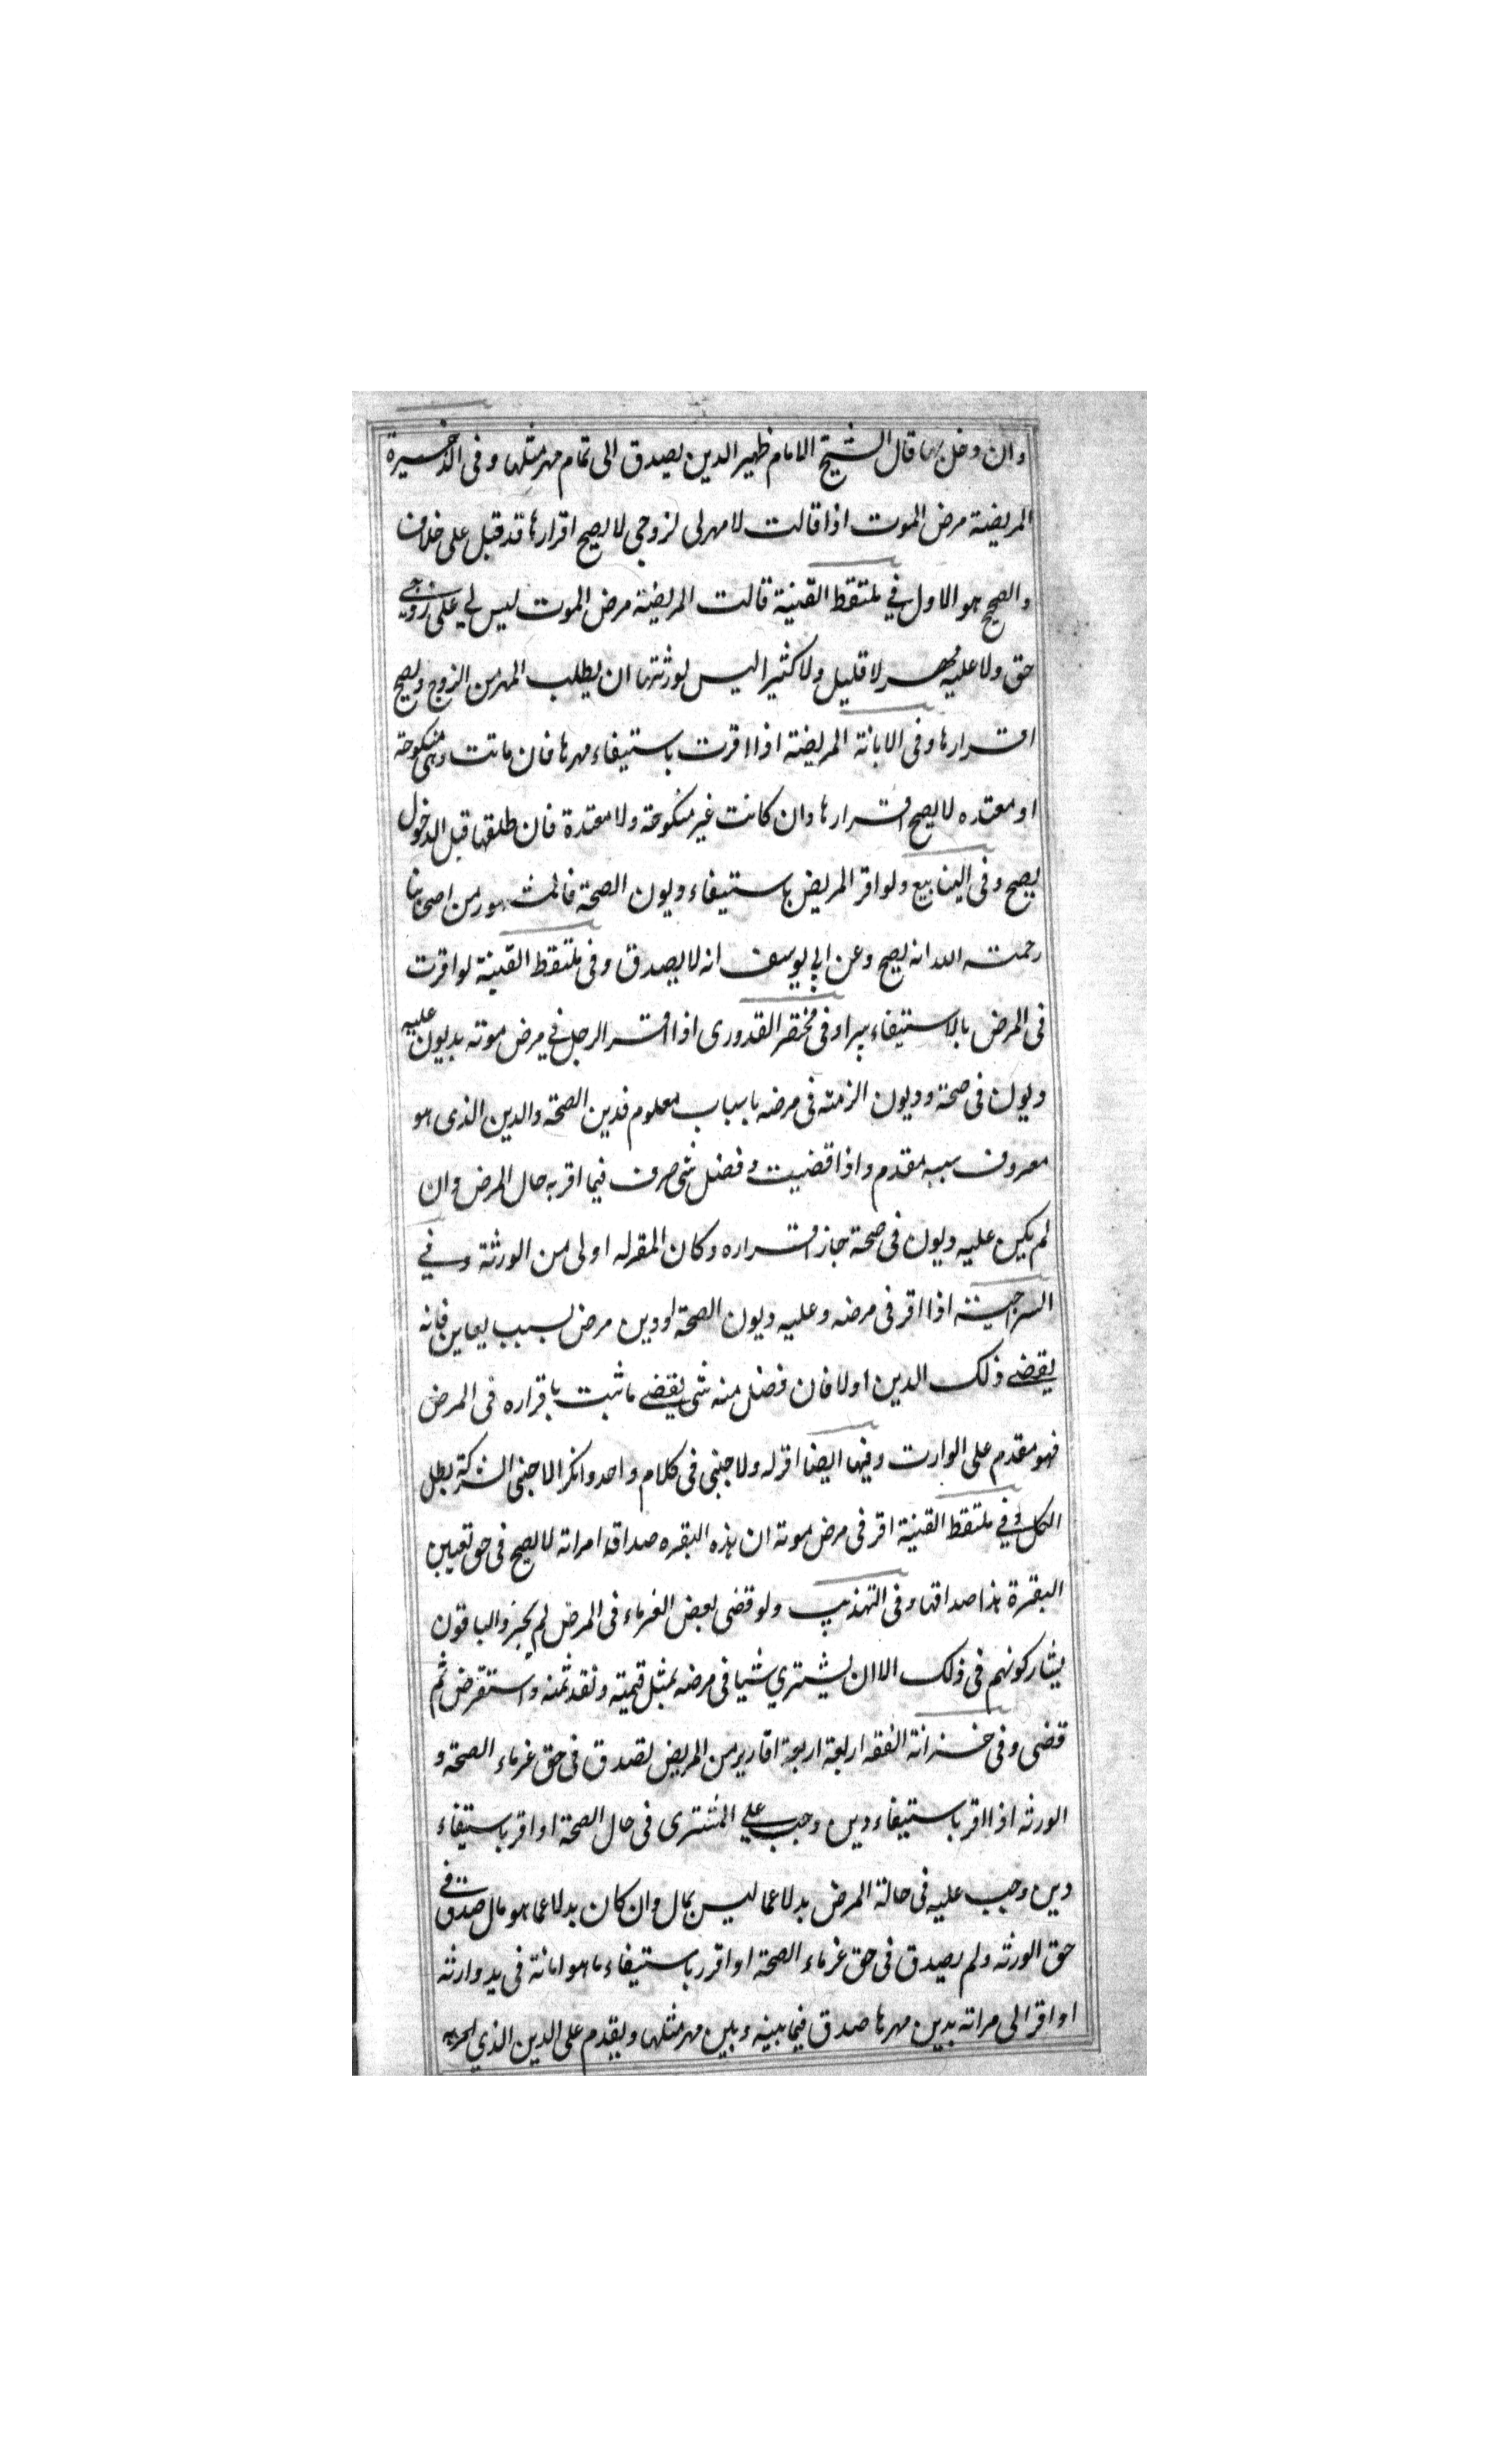 وان دخل بها قال الشيخ الامام ظهير الدين يصدق الى تمام مهر مثلها وفى الذخيرة
المريضة مرض الموت اذا قالت لا مهر لى لزوجى لا يصح اقرارها قد قيل على خلاف
والصحيح هو الاول فى ملتقط القنية قالت المريضة مرض الموت ليس لي على زوجى
حق ولا عليه مهر لا قليل ولا كثير اليس لورثتها ان يطلب المهر من الزوج ويصح
اقرارها وفى الابانة المريضة اذا اقرت باستيفاء مهرها فان ماتت وهى منكوحة
او معتده لا يصح اقرارها وان كانت غير منكوحة ولا معتدة فان طلقها قبل الدخول
يصح وفى الينابيع ولو اقر المريض باستيفاء ديون الصحة فالمشهور من اصحابنا
رحمة الله انه يصح وعن ابي يوسف انه لا يصدق وفى ملتقط القنية لو اقرت
فى المرض بالاستيفاء يبرا وفى مختصر القدورى اذا اقر الرجل فى مرض موته بديون عليه
ديون فى صحة وديون الزمته فى مرضه باسباب معلوم فدين الصحة والدين الذى هو
معروف سببه مقدم واذا قضيت وفضل شى صرف فيما اقر به حال المرض وان
لم يكن عليه ديون فى صحة جاز اقراره وكان المقر له اولى من الورثة وفي
السراجية اذا اقر فى مرضه وعليه ديون الصحة او دين مرض بسبب يعاين فانه
يقضى ذلك الدين اولا فان فضل منه شى يقضى ما ثبت باقراره فى المرض
فهو مقدم على الوارث وفيها ايضا اقر له ولا جنبى فى كلام واحد وانكر الاجنبى الشركة بطل
الكل وفي ملتقط القنية اقر فى مرض موته ان هذه البقره صداق امراته لا يصح فى حق تعيين
البقرة هذا صداقها وفى التهذيب ولو قضى بعض الغرماء فى المرض لم يجز والباقون
يشاركونهم فى ذلك الا ان يشتري شيا فى مرضه بمثل قيمته ونقد ثمنه واستقرض ثم
قضى وفى خزانة الفقه اربعة اربعة اقارير من المريض تصدق فى حق غرماء الصحة و
الورثه اذا اقر باستيفاء دين وجب على المشترى فى حال الصحة او اقر باستيفاء
دين وجب عليه فى حالة المرض بدلا عما ليس بمال وان كان بدلا عما هو مال صدق فى
حق الورثه ولم يصدق فى حق غرماء الصحة او اقرر باستيفاء ما هو امانة فى يد وارثه
او اقر الى مراته بدين مهرها صدق فيما بينه وبين مهر مثلها ويقدم على الدين الذي